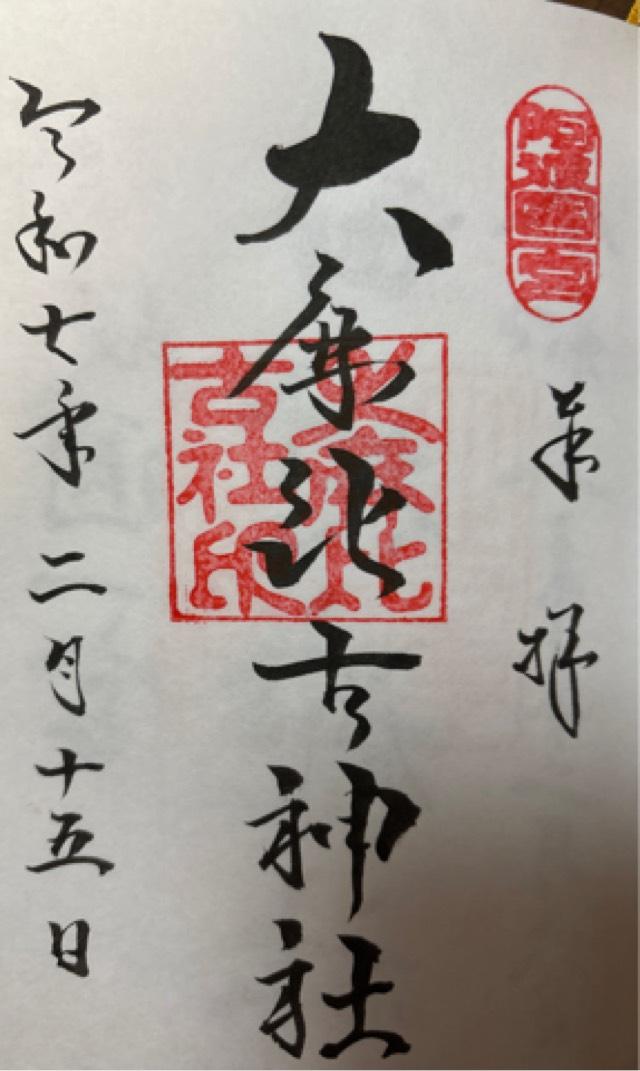 阿波國一宮
奉拝
大麻比古神社
大麻比古社印
令和七年二月十五日